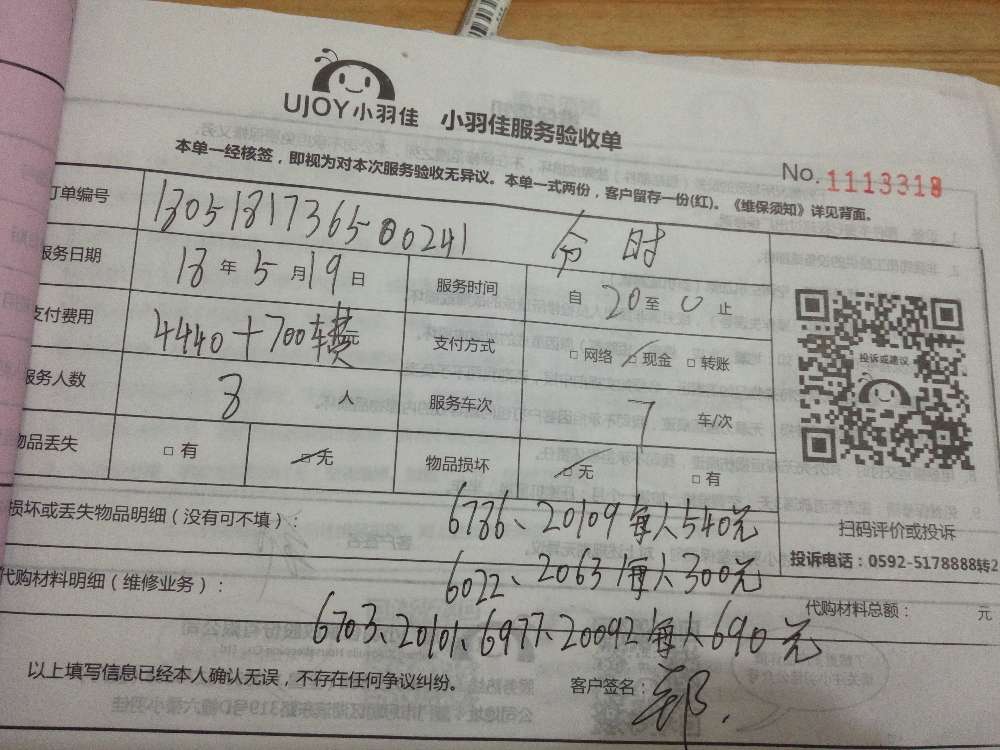 UJOY小羽佳 小羽佳服务验收单
No. 1113318
本单一经核签，即视为对本次服务验收无异议。本单一式两份，客户留存一份(红)。《维保须知》详见背面。
订单编号 1805181736500241 分时
服务日期 18 年 5 月 19 日 服务时间 自 20 至 0 止
支付费用 4440+700车费 元 支付方式 □ 网络 □ 现金 □ 转账
服务人数 8 人 服务车次 7 车/次
物品丢失 □ 有 □ 无 物品损坏 □ 无 □ 有
投诉或建议
扫码评价或投诉
投诉电话：0592-5178888转2
损坏或丢失物品明细（没有可不填）： 6786、20109每人540元
6022、20631每人300元
代购材料明细（维修业务）： 代购材料总额： 元
6703、20101、6977、20092每人690元
以上填写信息已经本人确认无误，不存在任何争议纠纷。 客户签名：郑